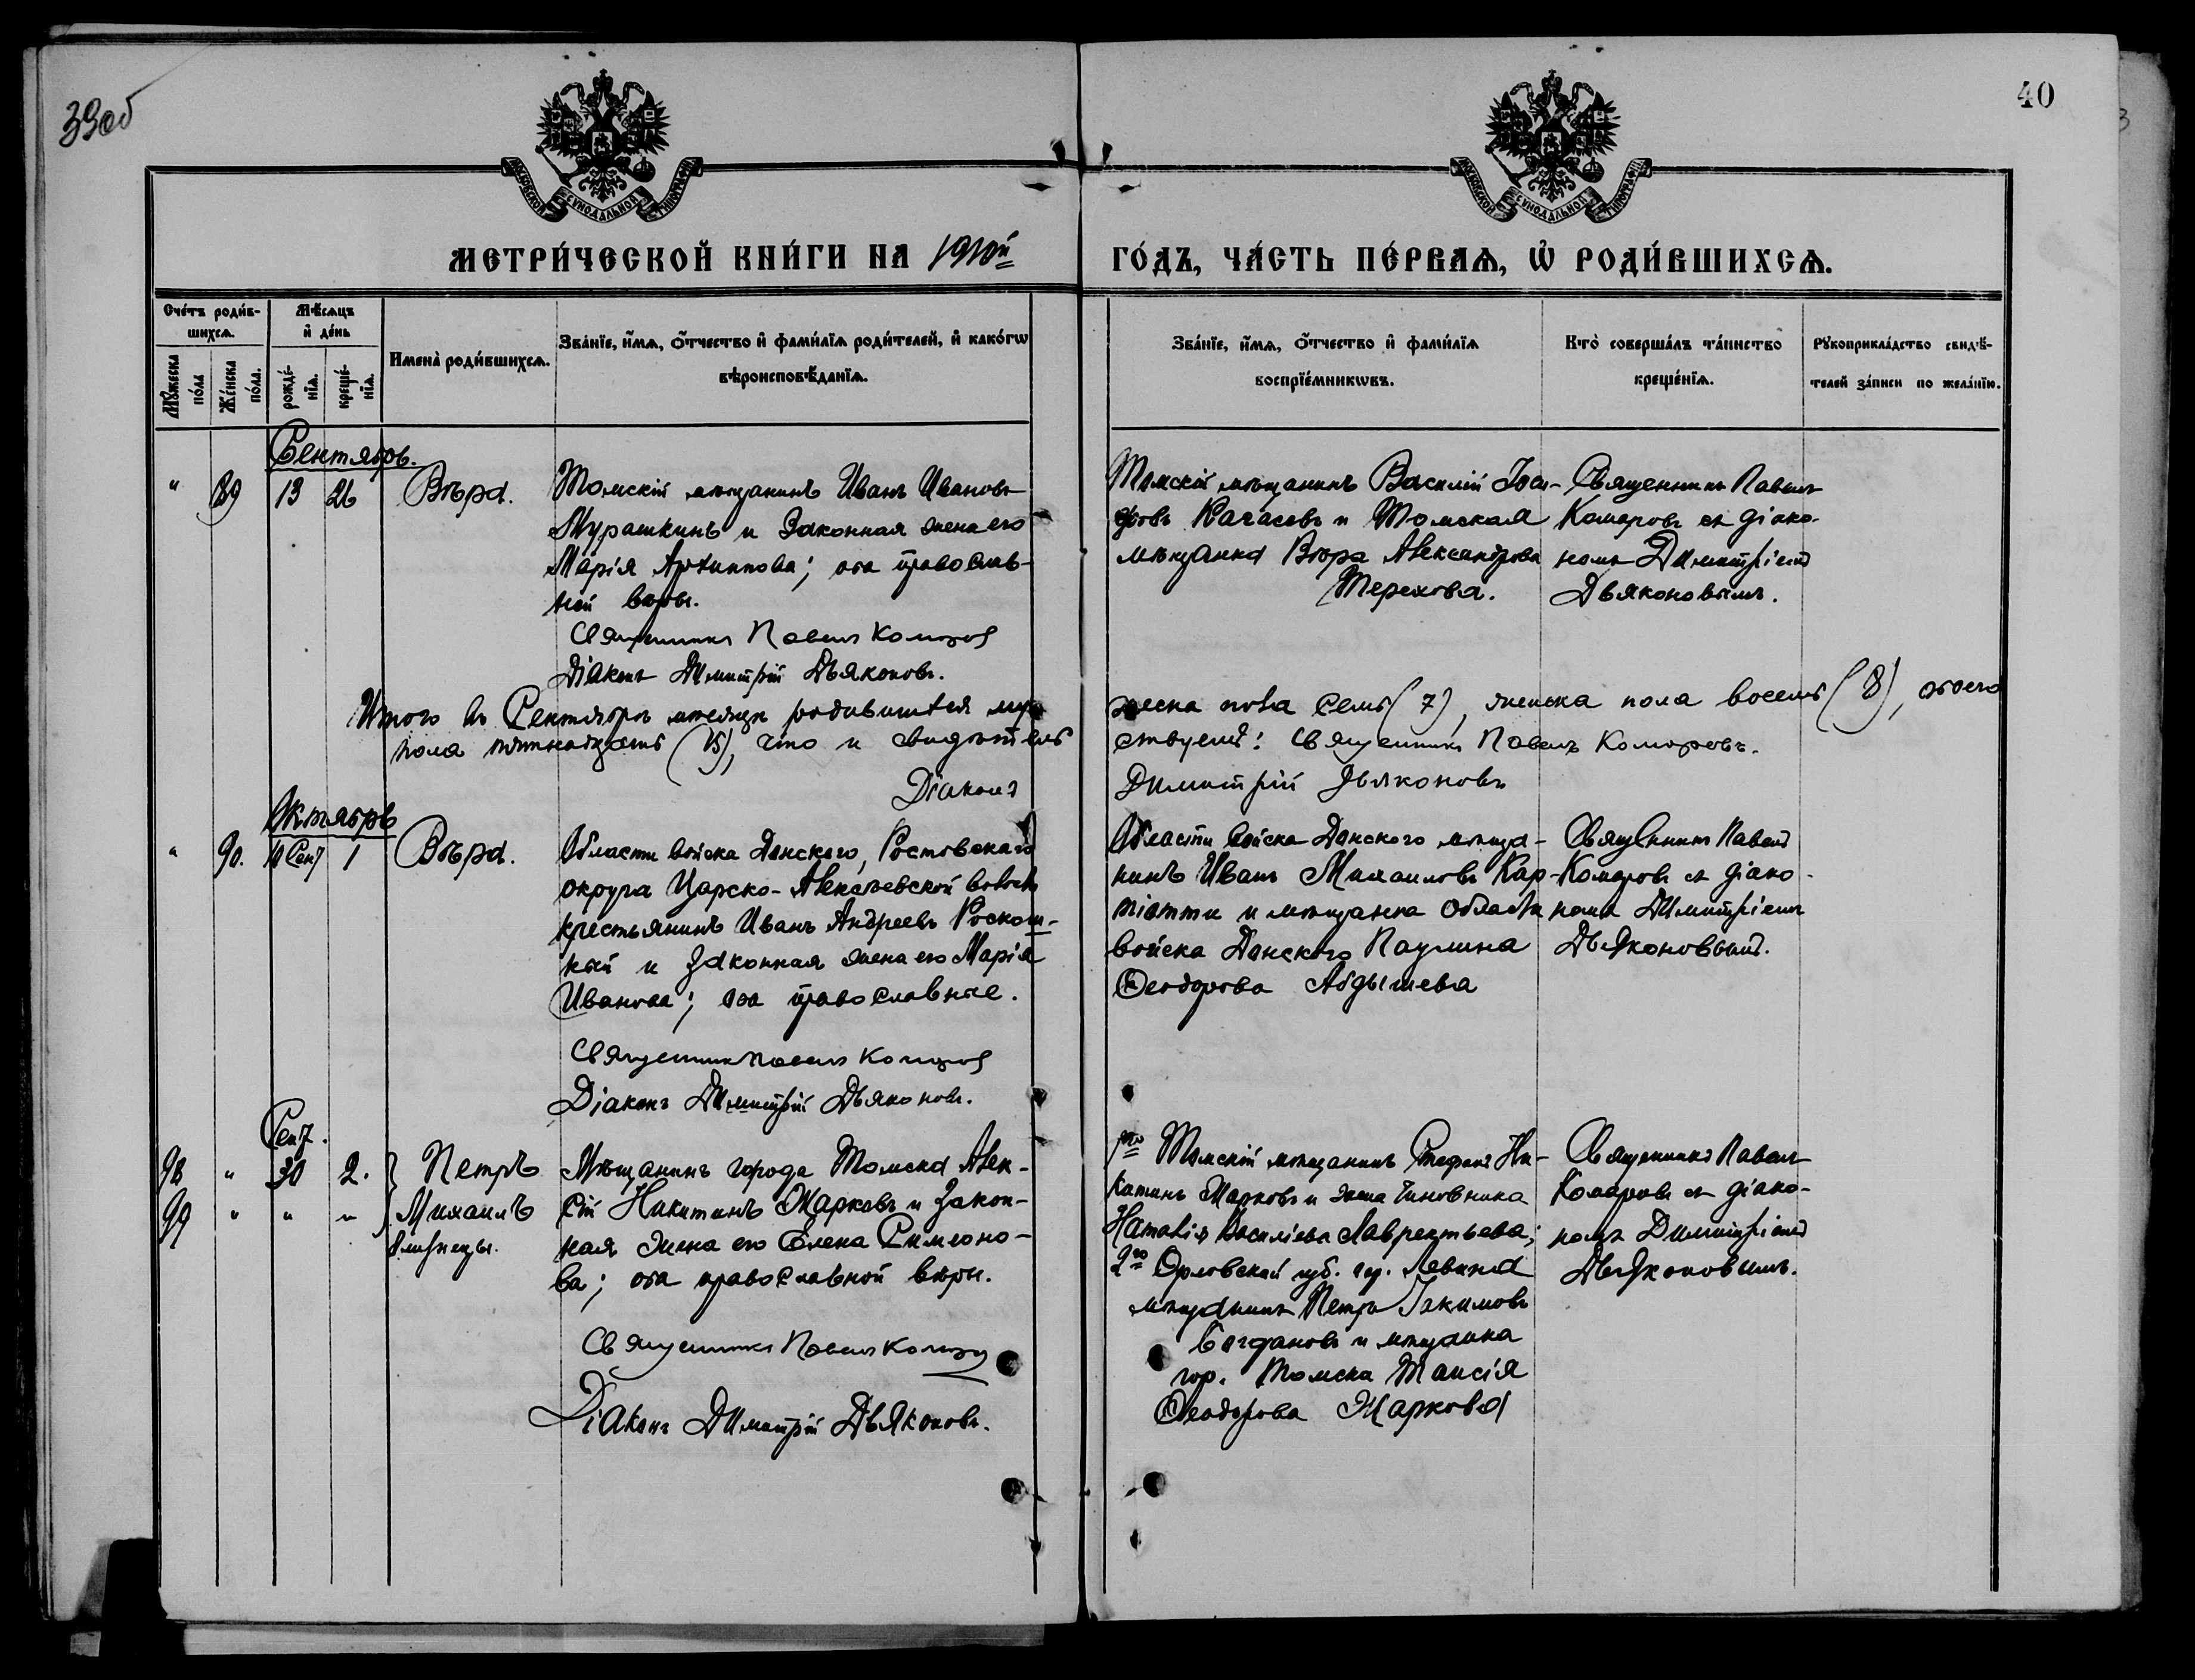 39об
40
МОСКОВСКОЙ СѴНОДАЛЬНОЙ ТИПОГРАФІИ
МОСКОВСКОЙ СѴНОДАЛЬНОЙ ТИПОГРАФІИ
МЕТРИ́ЧЕСКОЙ КНИ́ГИ НА 1910й
ГО́ДЪ, ЧА́СТЬ ПЕ́РВАѦ, Ѡ҆ РОДИ́ВШИХСѦ.
Сче́тъ роди́в-
шихсѧ.
Мꙋ́жеска по́ла
Же́нска по́ла.
Мѣ́сѧцъ
и҆ де́нь
рожде́-
нїѧ.
креще́-
нїѧ.
Имена̀ роди́вшихсѧ.
Зва́нїе, и҆́мѧ, о҆́тчество и҆ фами́лїѧ роди́телей, и҆ како́гѡ
вѣроисповѣ́данїѧ.
Зва́нїе, и҆́мѧ, о҆́тчество и҆ фами́лїѧ
воспрїе́мникѡвъ.
Кто̀ соверша́лъ та́инство
креще́нїѧ.
Рꙋкоприкла́дство свидѣ́-
телей за́писи по жела́нїю.
Сентябрь.
" 89 13 26 Вѣра.
Томскій мѣщанинъ Иванъ Ивановъ
Мурашкинъ и законная жена его
Марія Архиппова; оба православ-
ной вѣры.
Священникъ Павелъ Комаровъ
Діаконъ Димитрій Дьяконовъ.
Томскій мѣщанинъ Василій
Качасовъ и Томская
мѣщанка Вѣра Александрова
Терехова.
Священникъ Павелъ
Комаровъ съ діако-
номъ Димитріемъ
Дьяконовымъ.
Итого въ Сентябрѣ мѣсяцѣ родившихся муж
жеска пола семь (7), женска пола восемь (8), обоего
пола пятнадцать (15), что и свидѣтель
ствуемъ: Священникъ Павелъ Комаровъ.
Діаконъ
Димитрій Дьяконовъ
Октябрь
" 90. 10 Сент 1 Вѣра.
Области войска Донского, Ростовскаго
округа Царско-Алексѣевской волости
крестьянинъ Иванъ Андреевъ Роскош-
ный и законная жена его Марія
Иванова; оба православные.
Священникъ Павелъ Комаровъ
Діаконъ Димитрій Дьяконовъ.
Области войска Донского мѣща-
нинъ Иванъ Михаиловъ Кар-
піотти и мѣщанка Области
войска Донского Паулина
Ѳеодорова Абдышева
Священникъ Павелъ
Комаровъ съ діако-
номъ Димитріемъ
Дьяконовымъ.
Сент.
98 " 30 2. Петръ
99 " " " Михаилъ
близнецы.
Мѣщанинъ города Томска Алек-
сій Никитинъ Жарковъ и закон-
ная жена его Елена Симеоно-
ва; оба православной вѣры.
Священникъ Павелъ Комаровъ
Діаконъ Димитрій Дьяконовъ.
1го Томскій мѣщанинъ Стефанъ Ни-
китинъ Жарковъ и жена чиновника
Наталія Василіева Лаврентьева;
2го Орловской губ. гор. Ливенъ
мѣщанинъ Петръ Іакимовъ
Богдановъ и мѣщанка
гор. Томска Таисія
Ѳеодорова Жаркова
Священникъ Павелъ
Комаровъ съ діако-
номъ Димитріемъ
Дьяконовымъ.